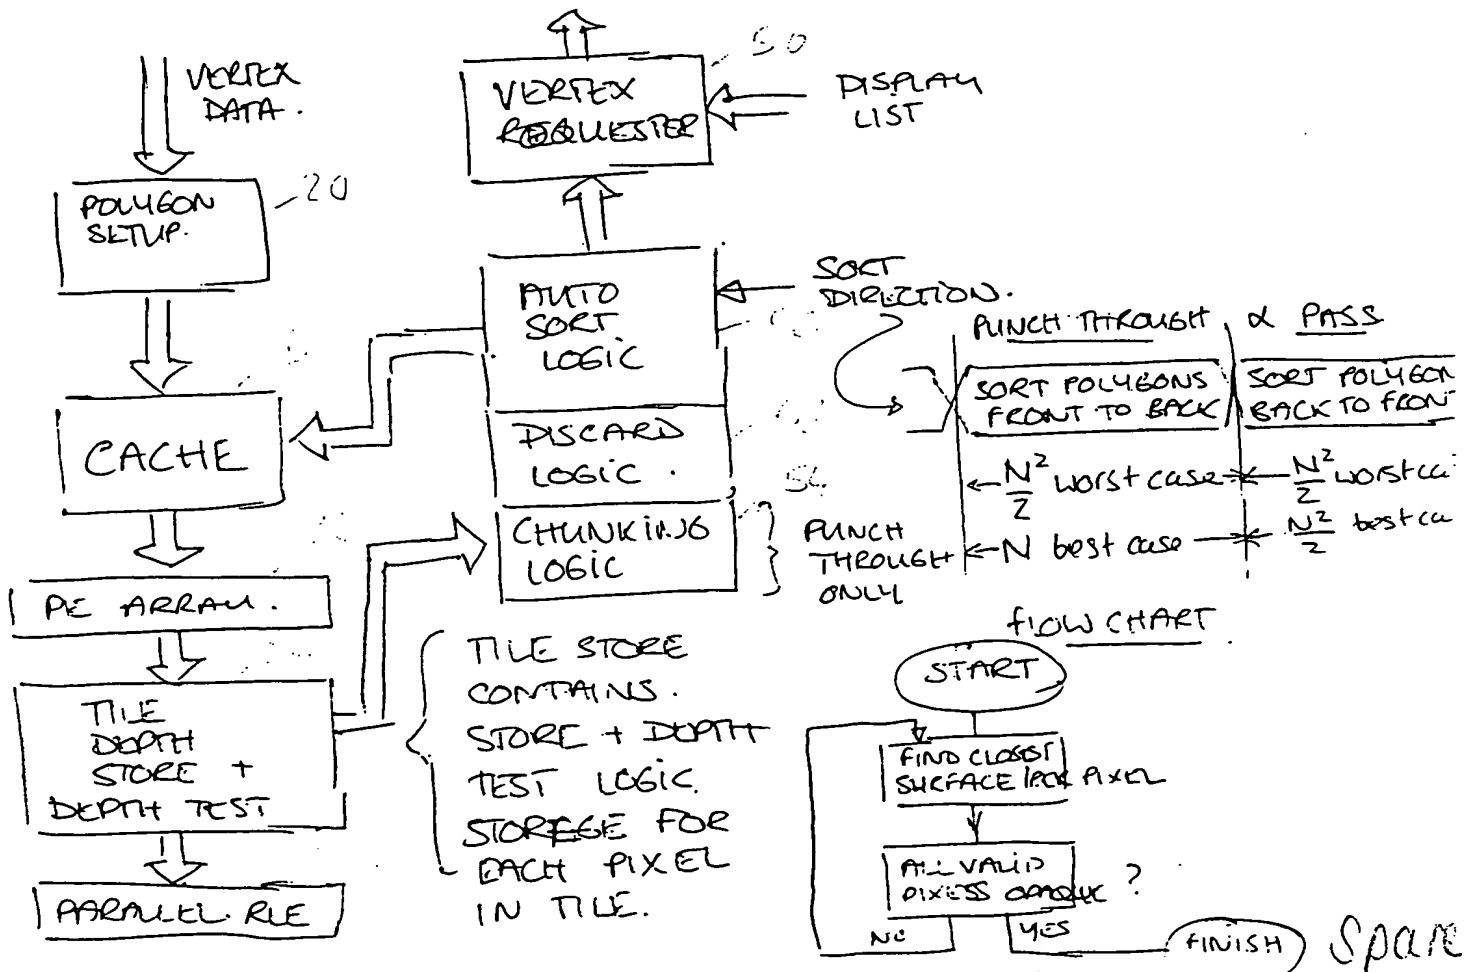 VERTEX
DATA.
20
POLYGON
SETUP.
CACHE
PE ARRAY.
TILE
DEPTH
STORE +
DEPTH TEST
PARALLEL RLE
50
VERTEX
REQUESTER
DISPLAY
LIST
AUTO
SORT
LOGIC
SORT
DIRECTION.
DISCARD
LOGIC.
54
CHUNKING
LOGIC
PUNCH
THROUGH
ONLY
TILE STORE
CONTAINS.
STORE + DEPTH
TEST LOGIC.
STOREGE FOR
EACH PIXEL
IN TILE.
PUNCH THROUGH
α PASS
SORT POLYGONS
FRONT TO BACK
SORT POLYGON
BACK TO FRON
N²/2 worst case
N²/2 worst ca
N best case
N²/2 best ca
flow CHART.
START
FIND CLOSEST
SURFACE /PER PIXEL
ALL VALID
PIXELS OPAQUE ?
NO
YES
FINISH
Spare